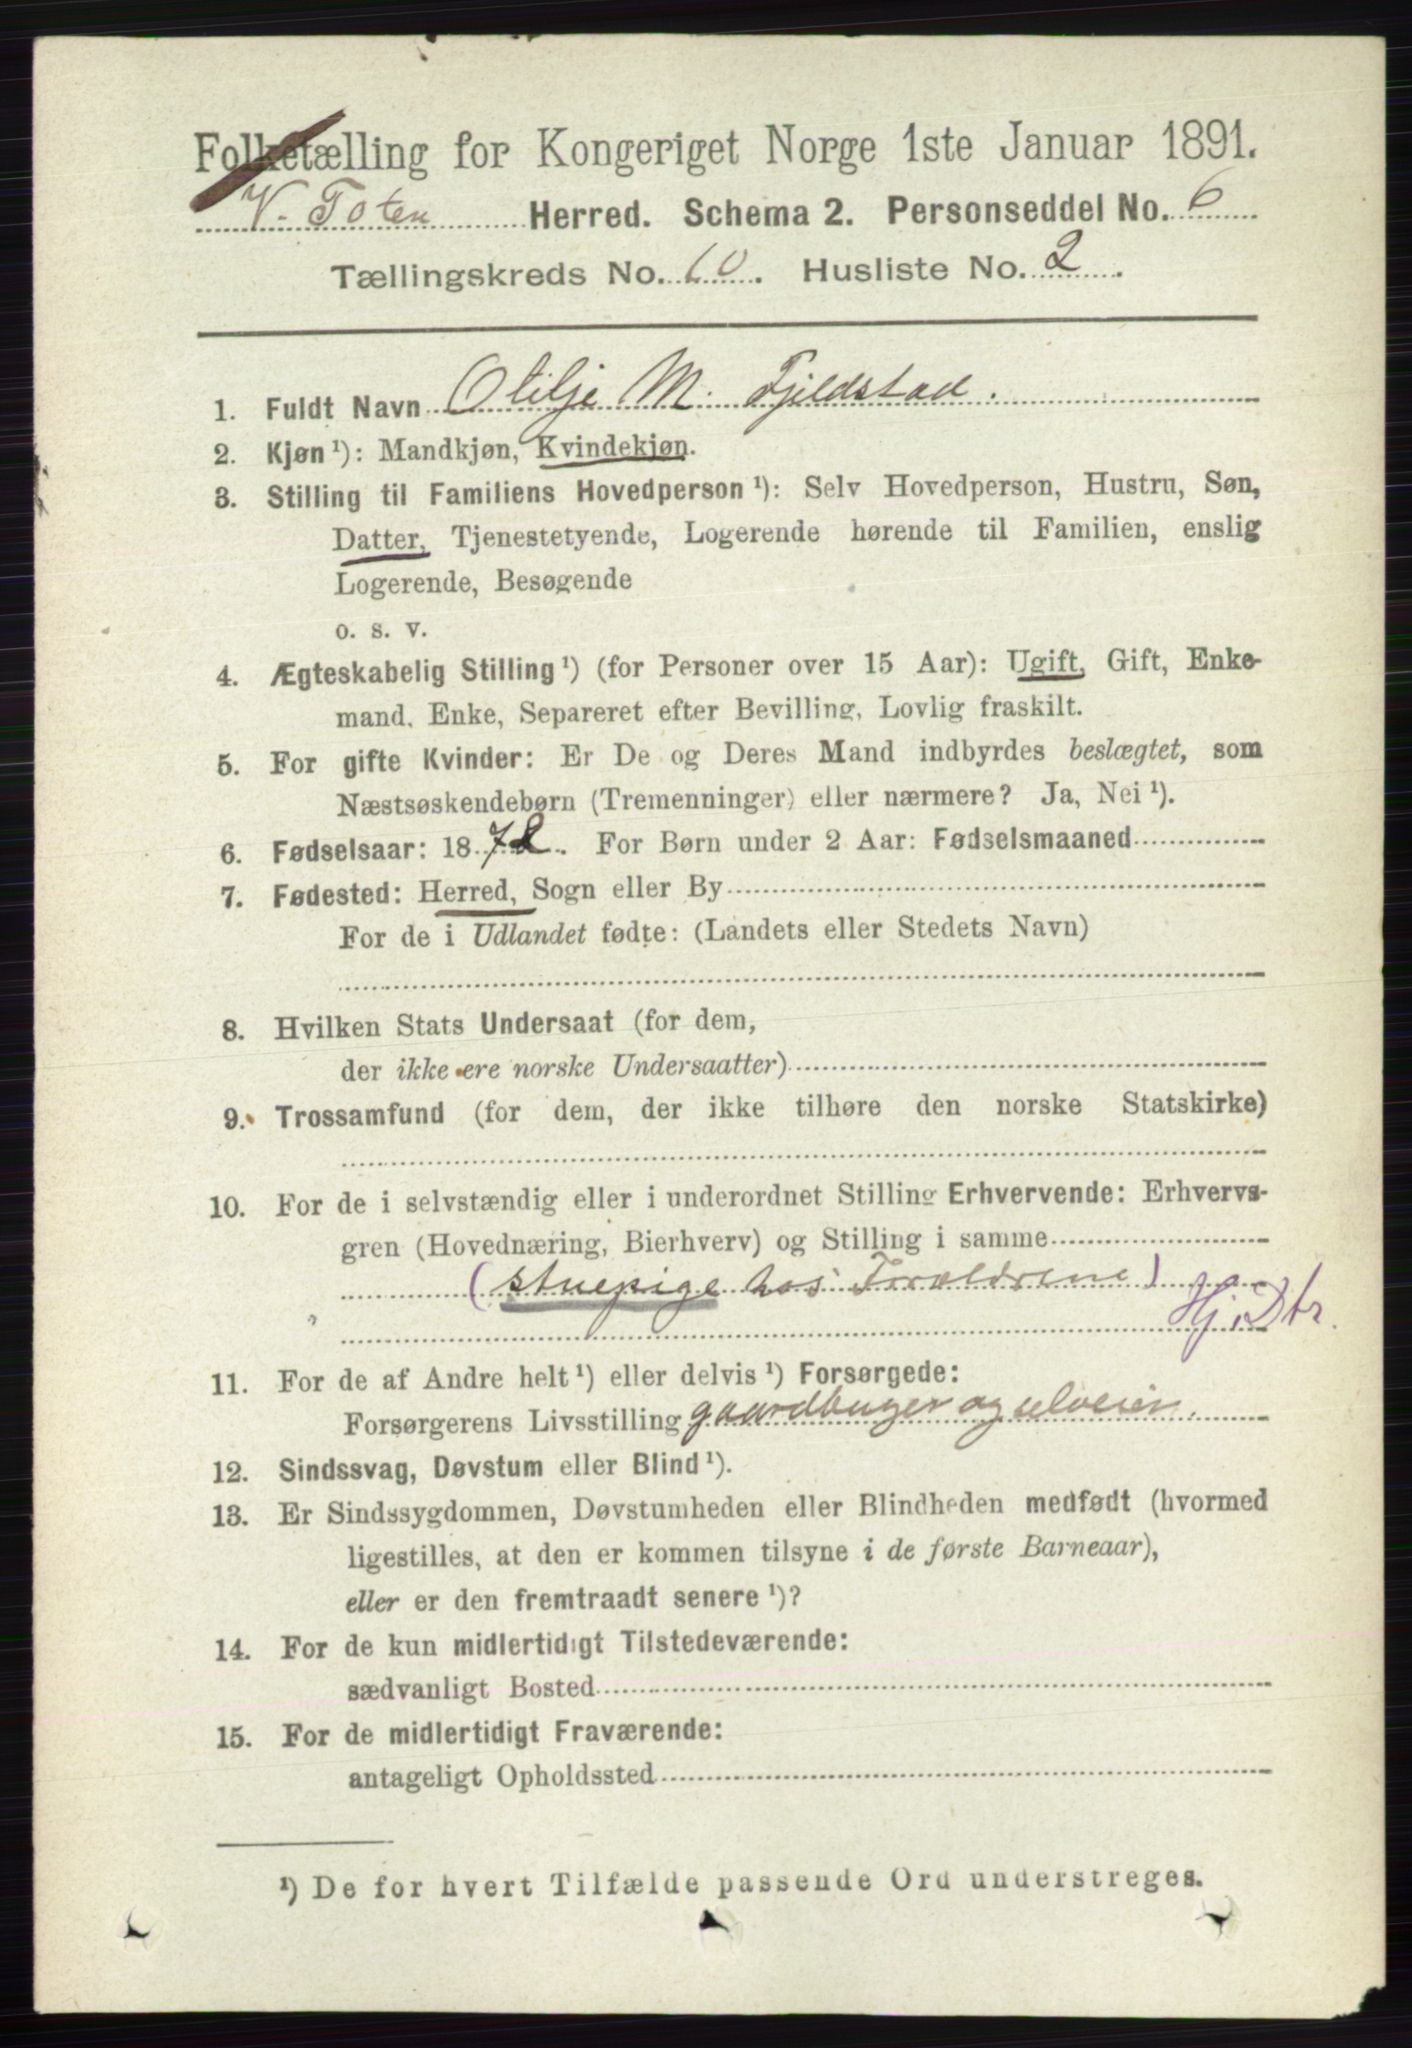 Folketælling for Kongeriget Norge 1ste Januar 1891.
V. Toten Herred. Schema 2. Personseddel No. 6
Tællingskreds No. 10. Husliste No. 2.
1. Fuldt Navn Otilje M. Fjeldstad.
2. Kjøn ¹): Mandkjøn, Kvindekjøn.
3. Stilling til Familiens Hovedperson ¹): Selv Hovedperson, Hustru, Søn,
Datter, Tjenestetyende, Logerende hørende til Familien, enslig
Logerende, Besøgende
o. s. v.
4. Ægteskabelig Stilling ¹) (for Personer over 15 Aar): Ugift, Gift, Enke-
mand, Enke, Separeret efter Bevilling, Lovlig fraskilt.
5. For gifte Kvinder: Er De og Deres Mand indbyrdes beslægtet, som
Næstsøskendebørn (Tremenninger) eller nærmere? Ja, Nei ¹).
6. Fødselsaar: 1872. For Børn under 2 Aar: Fødselsmaaned
7. Fødested: Herred, Sogn eller By
For de i Udlandet fødte: (Landets eller Stedets Navn)
8. Hvilken Stats Undersaat (for dem,
der ikke ere norske Undersaatter)
9. Trossamfund (for dem, der ikke tilhøre den norske Statskirke)
10. For de i selvstændig eller i underordnet Stilling Erhvervende: Erhvervs-
gren (Hovednæring, Bierhverv) og Stilling i samme
(stuepige hos Forældrene)
Hj. Dtr.
11. For de af Andre helt ¹) eller delvis ¹) Forsørgede:
Forsørgerens Livsstilling gaardbruger og selveier.
12. Sindssvag, Døvstum eller Blind ¹).
13. Er Sindssygdommen, Døvstumheden eller Blindheden medfødt (hvormed
ligestilles, at den er kommen tilsyne i de første Barneaar),
eller er den fremtraadt senere ¹)?
14. For de kun midlertidigt Tilstedeværende:
sædvanligt Bosted
15. For de midlertidigt Fraværende:
antageligt Opholdssted
¹) De for hvert Tilfælde passende Ord understreges.